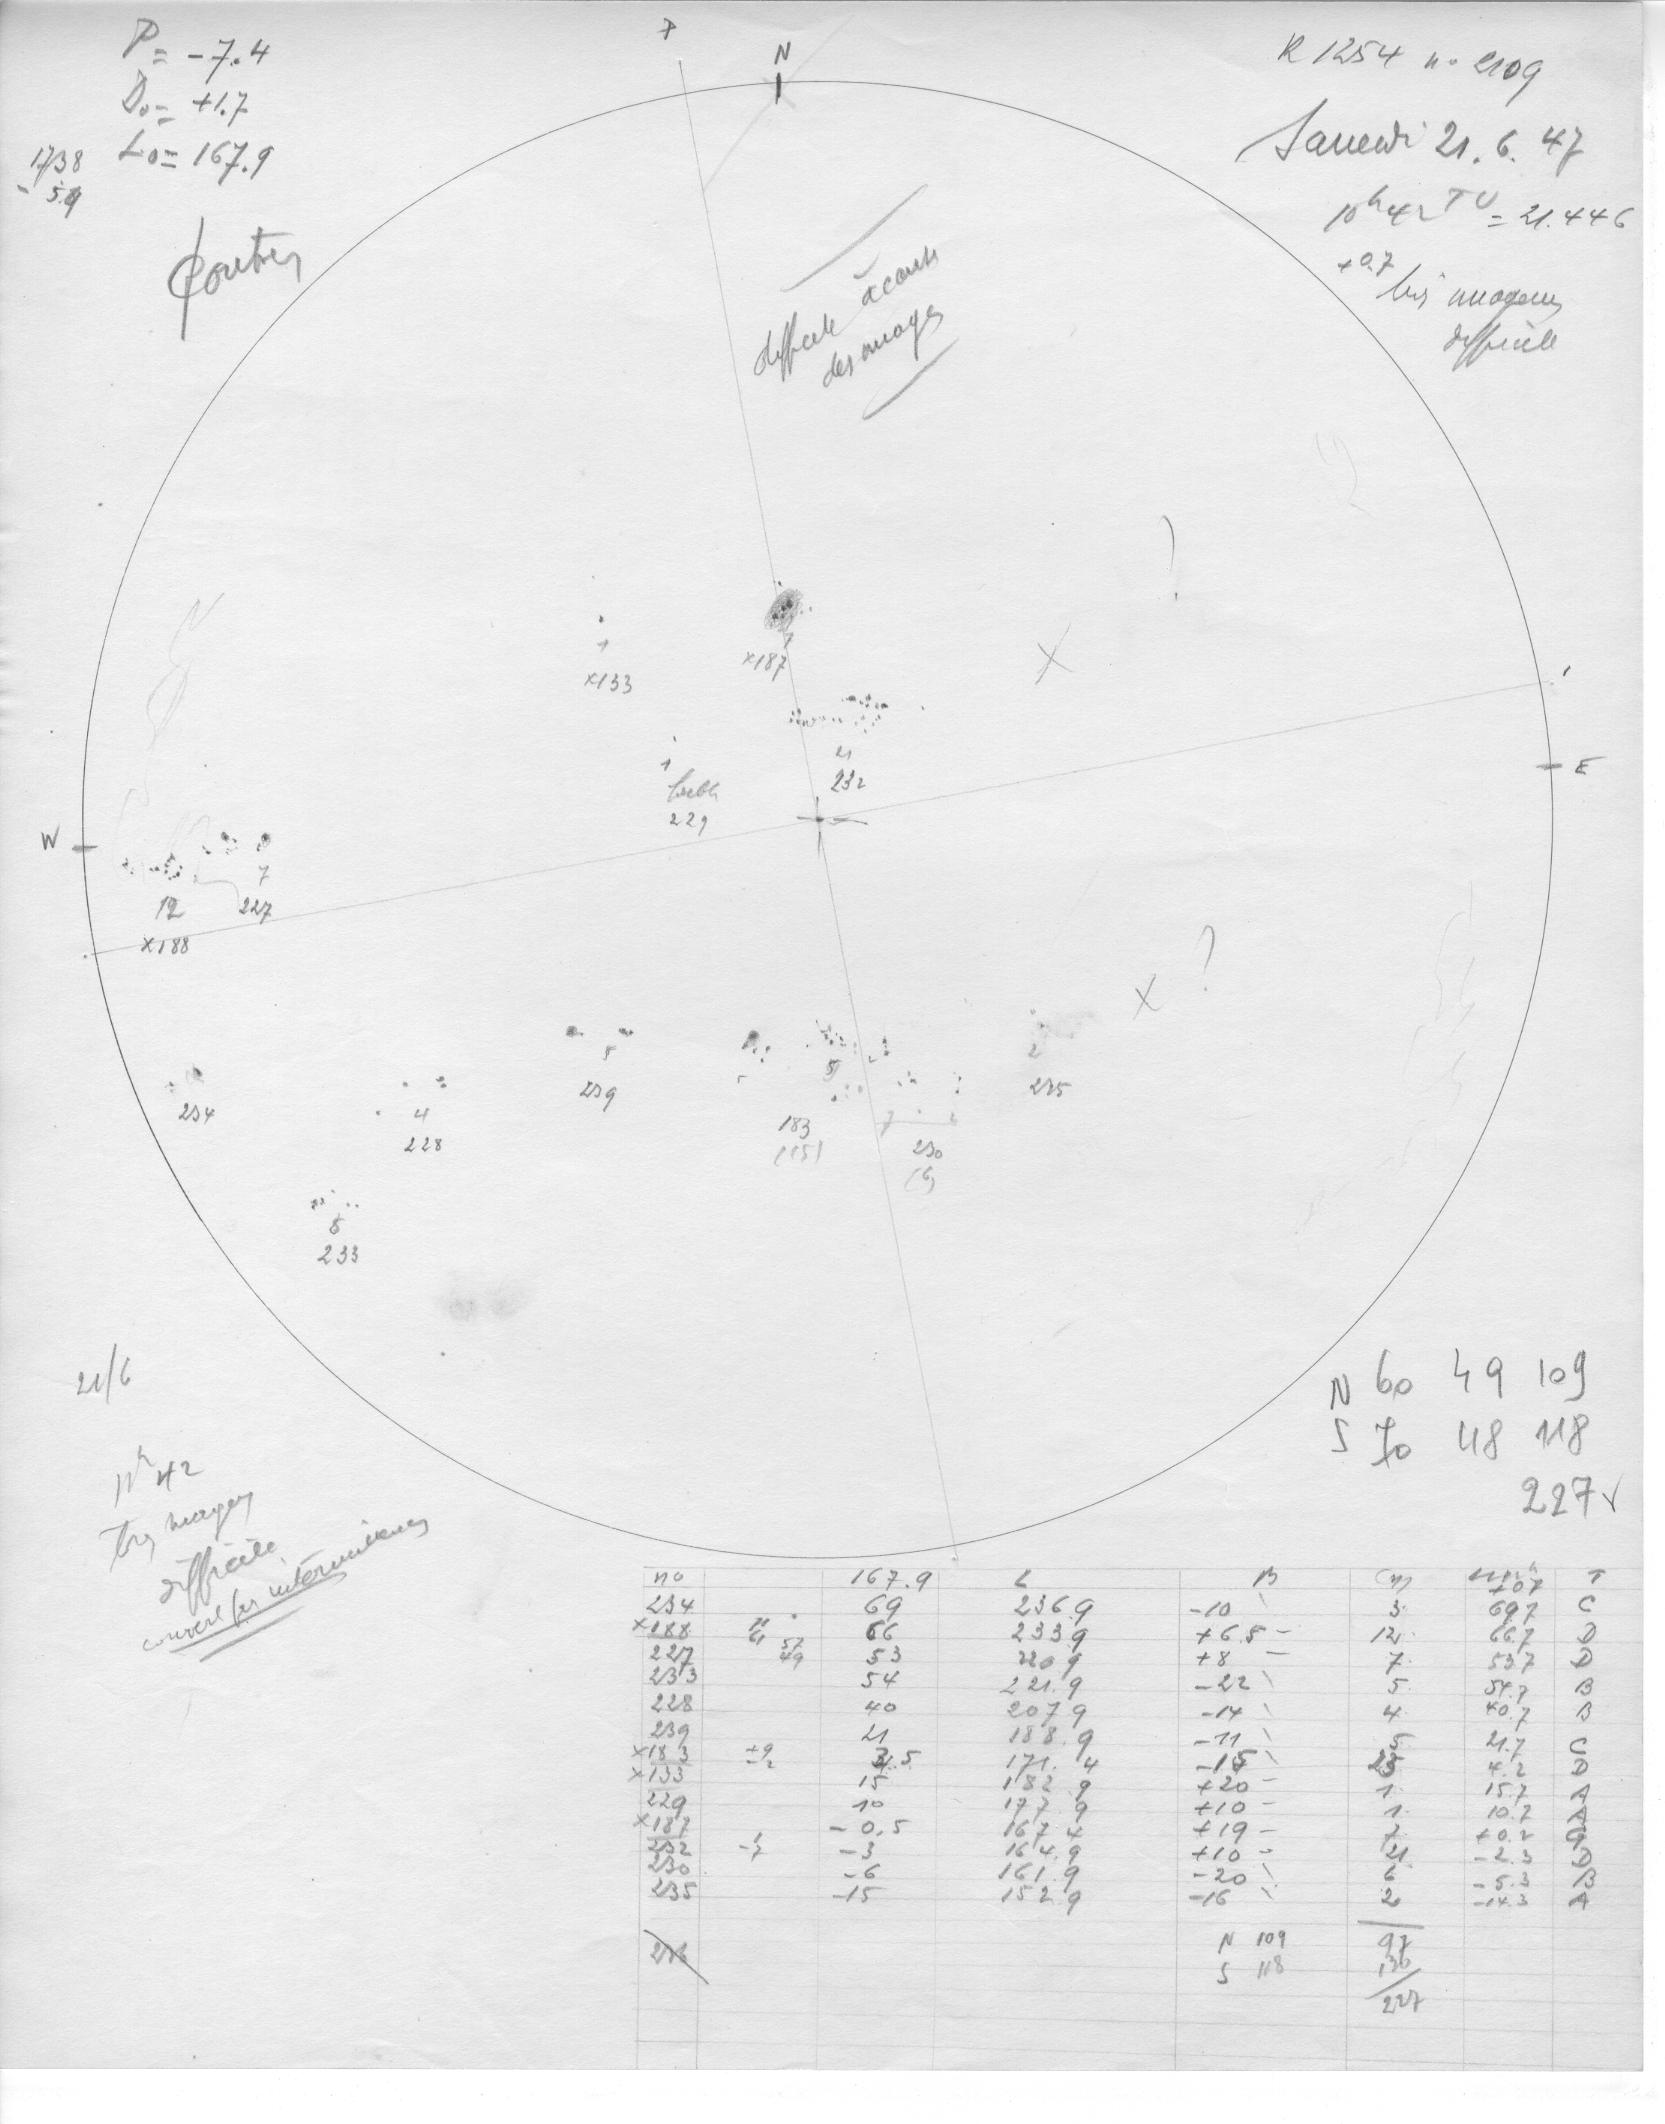 P = -7.4
= +1.7
L0 = 167.9
1738
- 59
P
N
R 1254 no 2109
Samedi 21. 6. 47
10h42 TU = 21.446
+0.7
très nuageux
difficile
difficile à cause
des nuages
?
1
x133
7
x187
X
21
232
1
faible
229
E
W
12
x188
7
227
X ?
234
4
228
5
239
5
183
(15)
7
230
(6)
2
235
5
233
21/6
42
très nuageux
difficile
N 60 49 109
S 70 48 118
227 ✓
no 167.9 L B T
234 69 236.9 -10 3 69.7 C
x188 66 233.9 +6.5 12 66.7 D
227 57 49 53 220.9 +8 7 53.7 D
233 54 221.9 -22 5 54.7 B
228 40 207.9 -14 4 40.7 B
239 21 188.9 -11 5 21.7 C
x183 3.5 171.4 -15 4.2 D
x133 15 182.9 +20 1 15.7 A
229 10 177.9 +10 1 10.7 A
x187 -0.5 167.4 +19 7 +0.2
232 -3 164.9 +10 21 -2.3 D
230 -6 161.9 -20 6 -5.3 B
235 -15 152.9 -16 2 -14.3 A
236 N 109 97
S 118 130
227